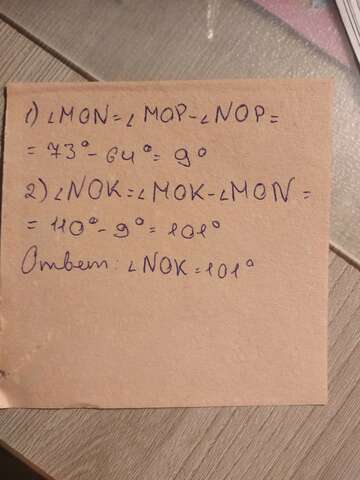 1) ∠MON=∠MOP-∠NOP=
= 73°-64°= 9°
2) ∠NOK=∠MOK-∠MON=
= 110°-9°= 101°
Ответ: ∠NOK=101°